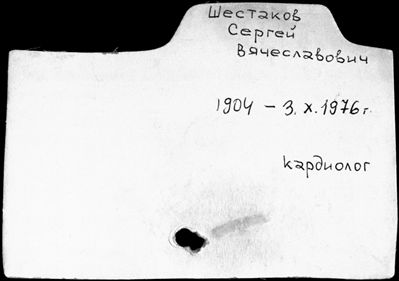 Шестаков
Сергей
Вячеславович
1904 – 3. X. 1976 г.
кардиолог